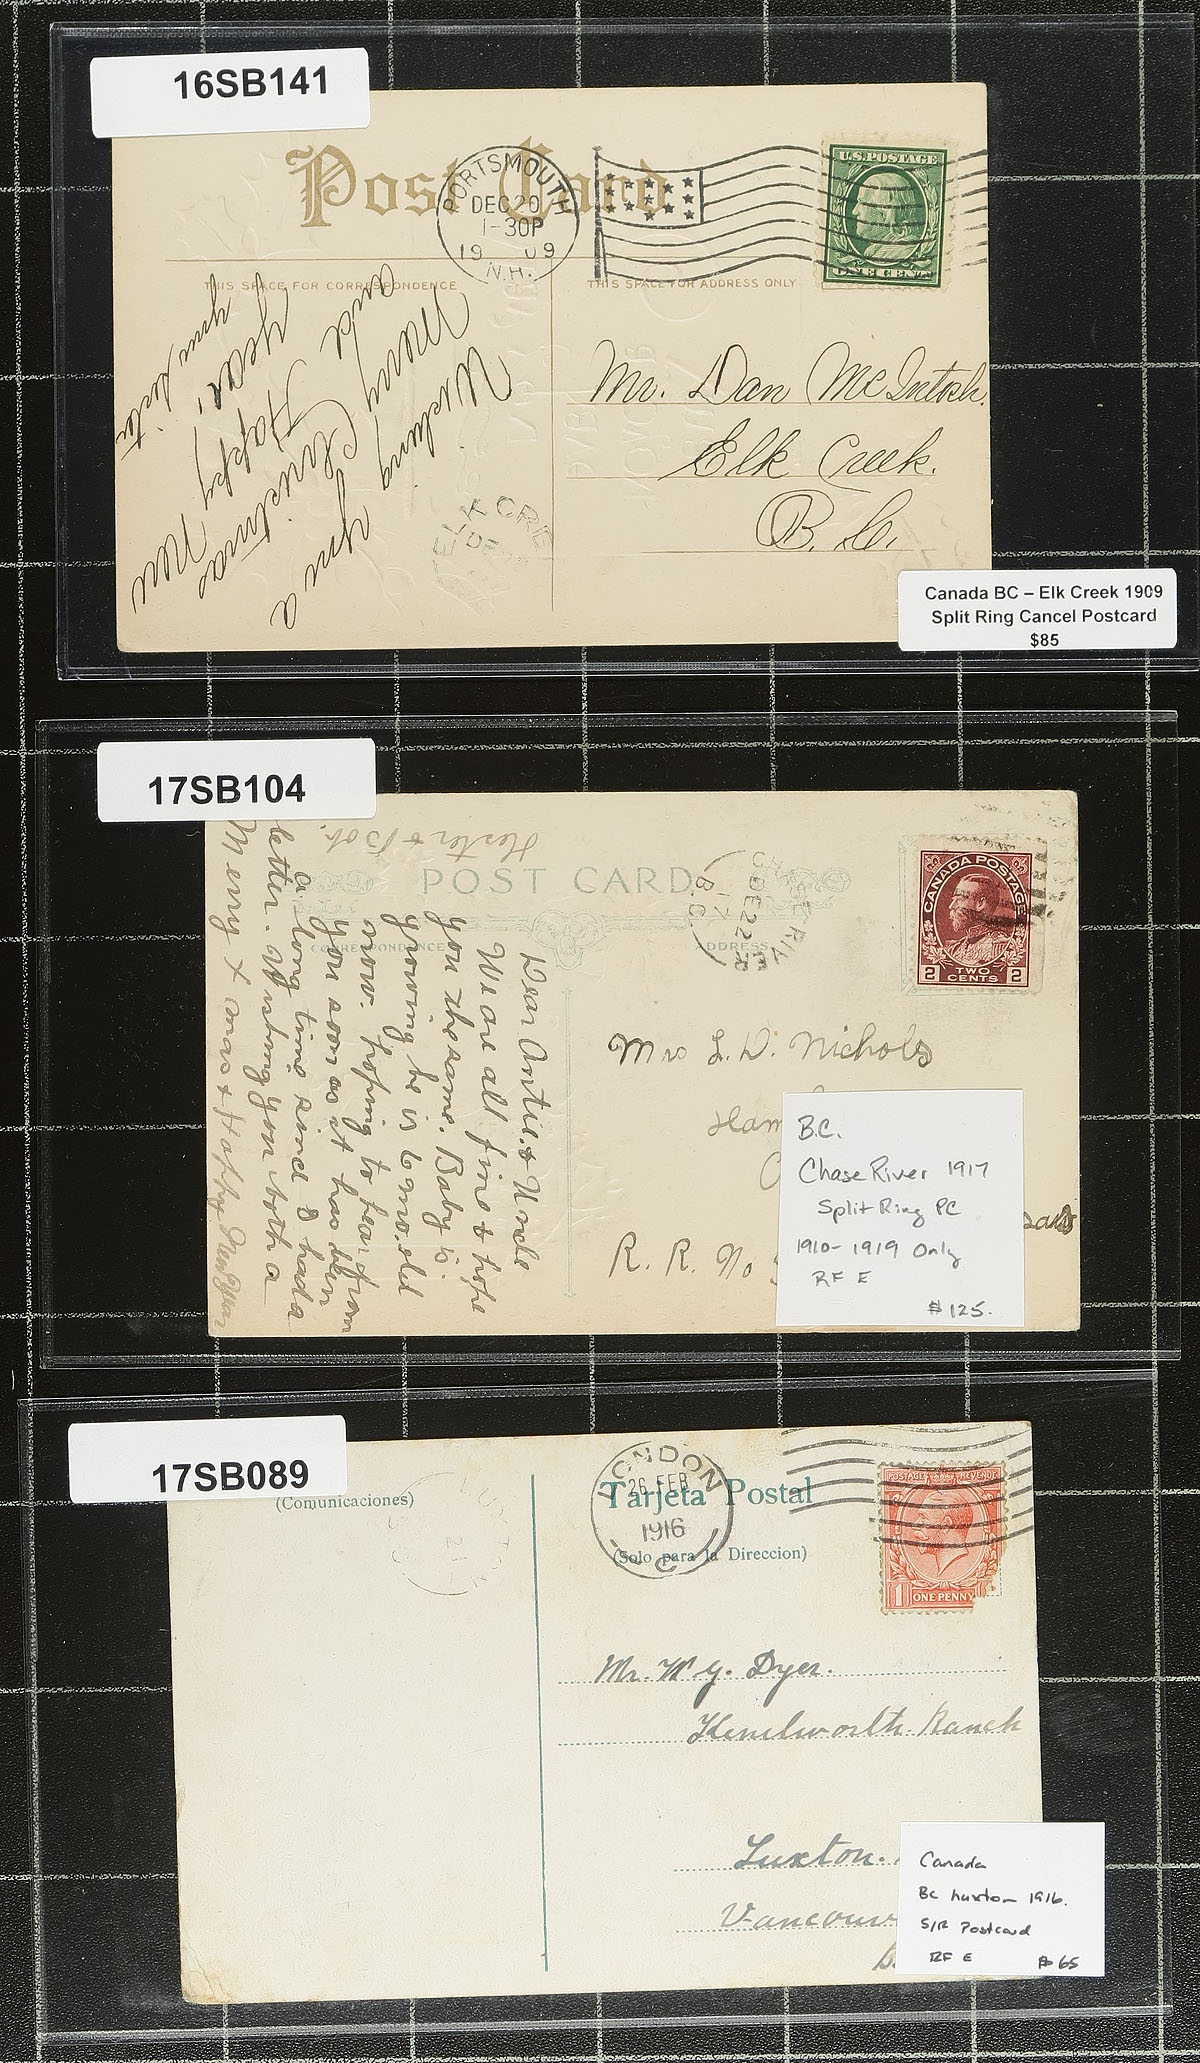 16SB141
Post Card
PORTSMOUTH
DEC 20
1-30P
1909
N.H.
U.S. POSTAGE
ONE CENT
THIS SPACE FOR CORRESPONDENCE
THIS SPACE FOR ADDRESS ONLY
Wishing you a
Merry Christmas
and Happy New
Year,
your sister
Mr. Dan McIntosh.
Elk Creek.
B. C.
ELK CRE
DE
Canada BC – Elk Creek 1909
Split Ring Cancel Postcard
$85
17SB104
Hester & Bob.
POST CARD
CORRESPONDENCE
ADDRESS
CHASE RIVER
DE 22
17
B.C.
CANADA POSTAGE
2 TWO CENTS 2
Dear Antie & Uncle
We are all fine & hope
you the same. Baby is
growing he is 6 mo. old
now. hoping to hear from
you soon as it has been
a long time since I had a
letter. Wishing you both a
Merry Xmas & Happy New Year
Mrs L. D. Nichols
Ham
R. R. No
B.C.
Chase River 1917
Split Ring PC
1910-1919 Only
RF E
$125.
17SB089
(Comunicaciones)
Tarjeta Postal
(Solo para la Direccion)
LONDON
26 FEB
1916
POSTAGE REVENUE
1 ONE PENNY
LUXTON
21
Mr. W G. Dyer.
Kenilworth Ranch
Luxton.
Vancouv
B.
Canada
BC Luxton 1916.
S/R Postcard
RF E
$65